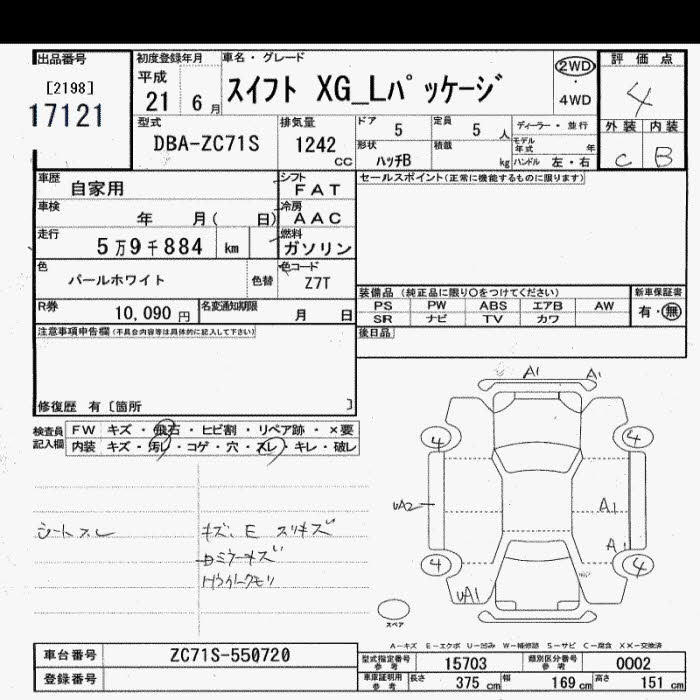 出品番号 初度登録年月 車名・グレード 評価点
[2198] 平成 スイフト XG_Lパッケージ 2WD 4
17121 21 6月 4WD
型式 排気量 ドア 5 定員 5人 ディーラー・並行 外装 内装
DBA-ZC71S 1242 cc 形状 ハッチB 積載 kg モデル年式 年 ハンドル 左・右 C B
車歴 自家用 シフト FAT セールスポイント(正常に機能するものに限ります)
車検 年 月( 日) 冷房 AAC
走行 5万9千884 km 燃料 ガソリン
色 パールホワイト 色替 色コード Z7T
装備品(純正品に限り○をつけてください) 新車保証書
R券 10,090円 名変通知期限 月 日 PS PW ABS エアB AW 有・無
SR ナビ TV カワ
注意事項申告欄(不具合内容等は具体的に記入して下さい) 後日品
修復歴 有〔箇所 〕
検査員記入欄 FW キズ・飛石・ヒビ割・リペア跡・×要
内装 キズ・汚レ・コゲ・穴・スレ・キレ・破レ
A1 A1
4 4
UA2 A1
A1
4 4
UA1
シートスレ キズ、E スリキズ
スペア
A-キズ E-エクボ U-凹み W-補修跡 S-サビ C-腐食 XX-交換済
車台番号 ZC71S-550720 型式指定番号 参考 15703 類別区分番号 参考 0002
登録番号 車庫証明用 参考 長さ 375cm 幅 169cm 高さ 151cm